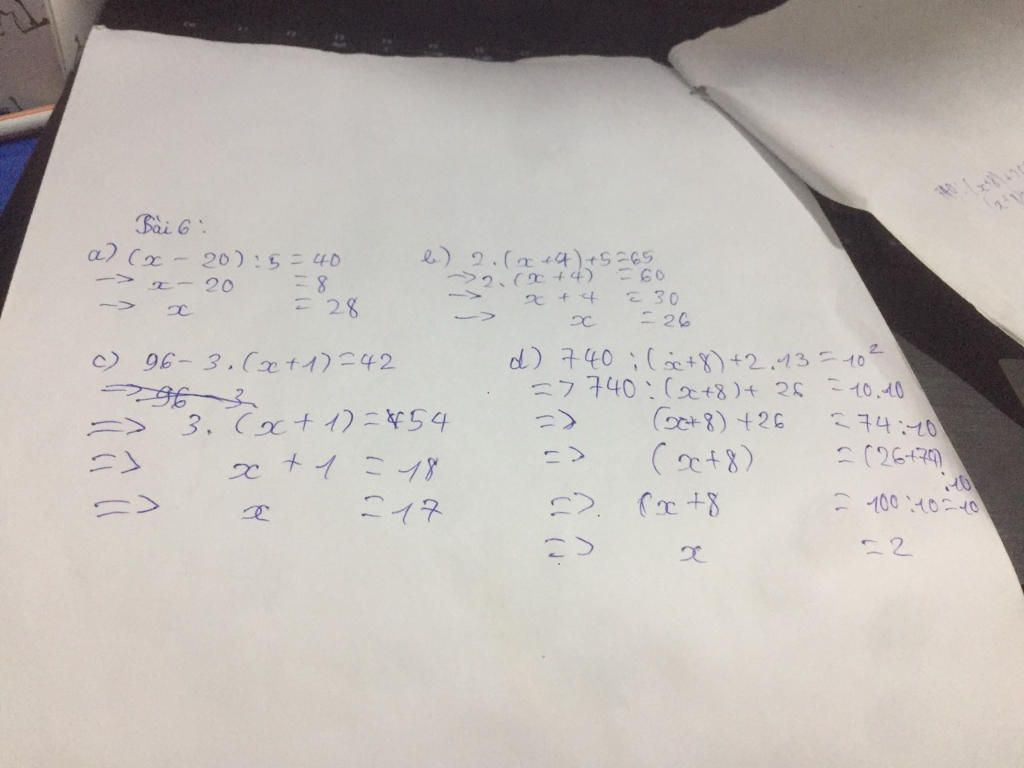 Bài 6:
a) (x - 20) : 5 = 40
-> x - 20 = 8
-> x = 28
b) 2. (x + 4) + 5 = 65
-> 2. (x + 4) = 60
-> x + 4 = 30
-> x = 26
c) 96 - 3. (x + 1) = 42
=> 96 3
=> 3. (x + 1) = 54
=> x + 1 = 18
=> x = 17
d) 740 : (x+8) + 2.13 = 10²
=> 740 : (x+8) + 26 = 10.10
=> (x+8) + 26 = 74 : 10
=> (x+8) = (26+74) : 10
=> (x+8 = 100 : 10 = 10
=> x = 2